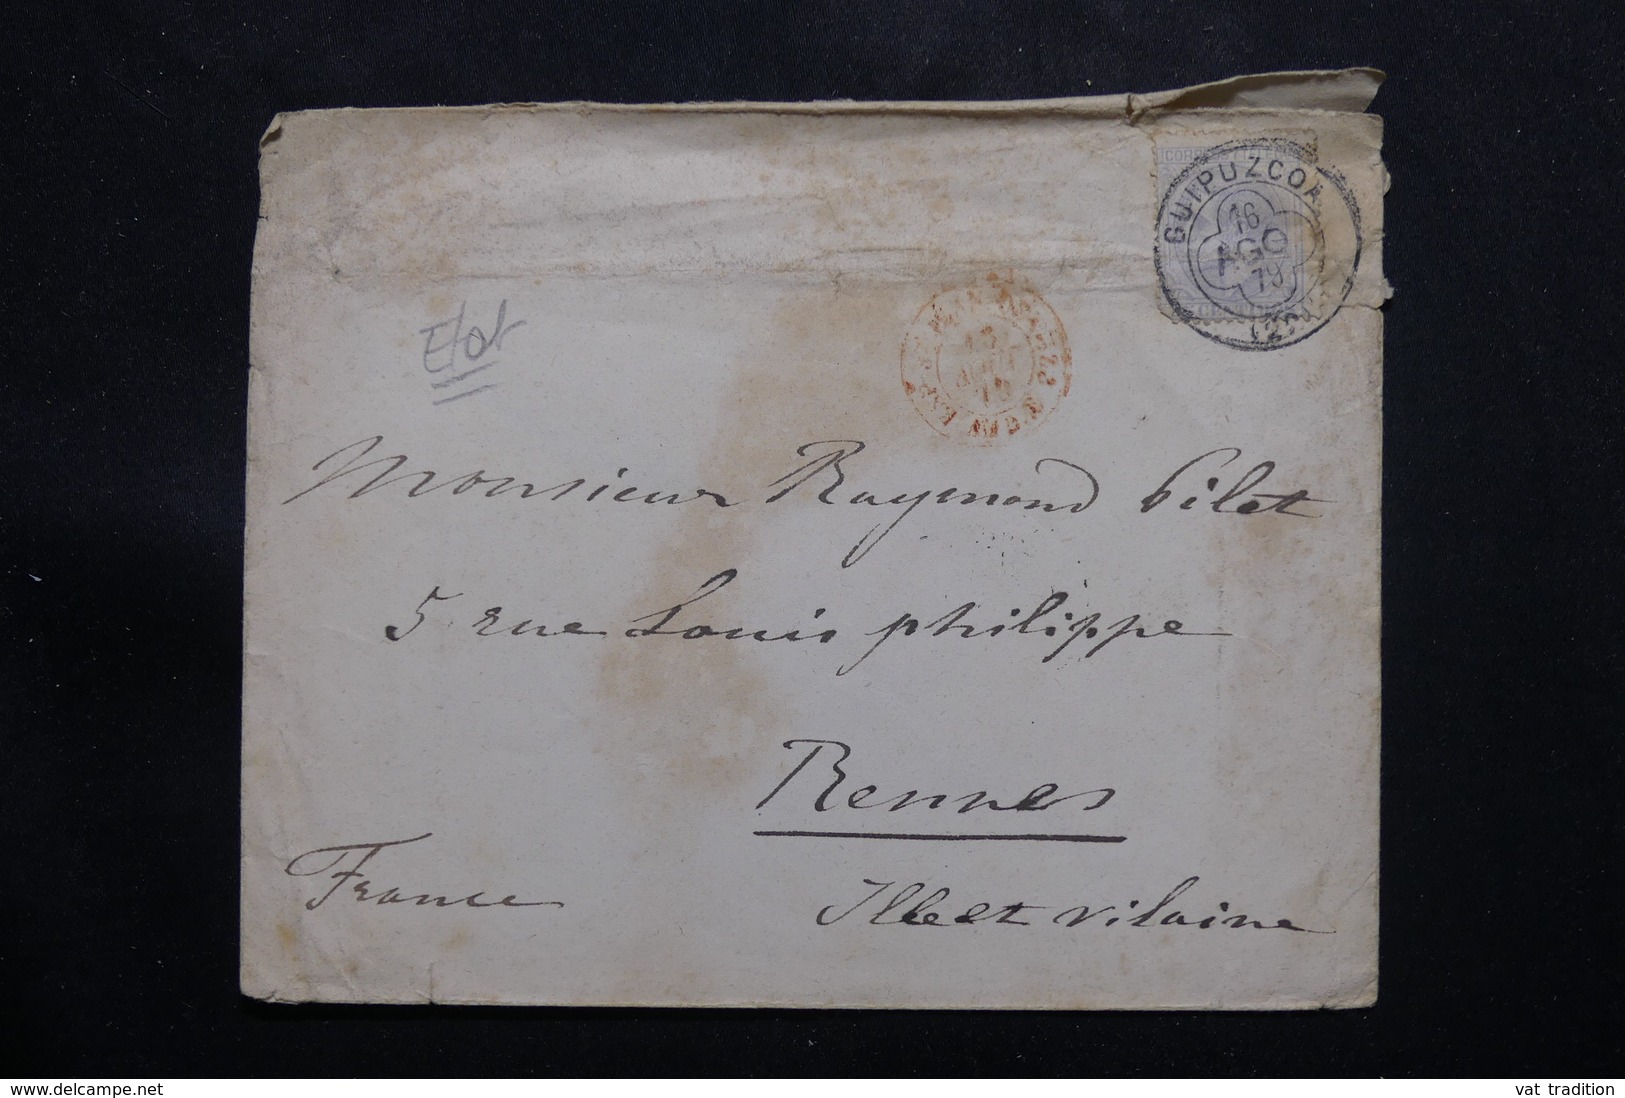 CORREOS
GUIPUZCOA
16
AGO
79
Etat
Monsieur Raymond Pilet
5 rue Louis philippe
Rennes
France
Ille et vilaine
www.delcampe.net
vat_tradition